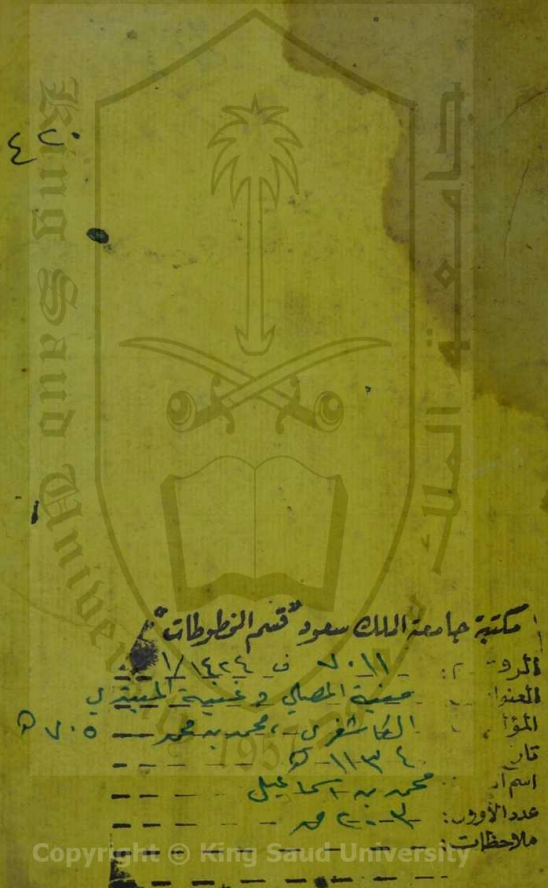 ٤٢٠
King Saud University
جامعة الملك سعود
1957
مكتبة جامعة الملك سعود "قسم المخطوطات"
الرقم: ٧٠١١ ف ١/١٤٢٤
العنوان: منية المصلي وغنية المبتدي
المؤلف: الكاشغري، محمد بن محمد — ٧٠٥ هـ
تاريخ: ١١٣٤ هـ
اسم: محمد بن اسماعيل
عدد الأوراق: ٢٠٣ ص
ملاحظات:
Copyright © King Saud University